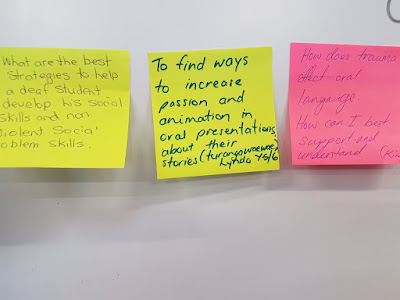 What are the best
strategies to help
a deaf student
develop his social
skills and non
violent social
problem skills.
To find ways
to increase
passion and
animation in
oral presentations
about their
stories (turangawaewae)
Lynda Y5/6
How does trauma
effect oral
language.
How can I best
support and
understand